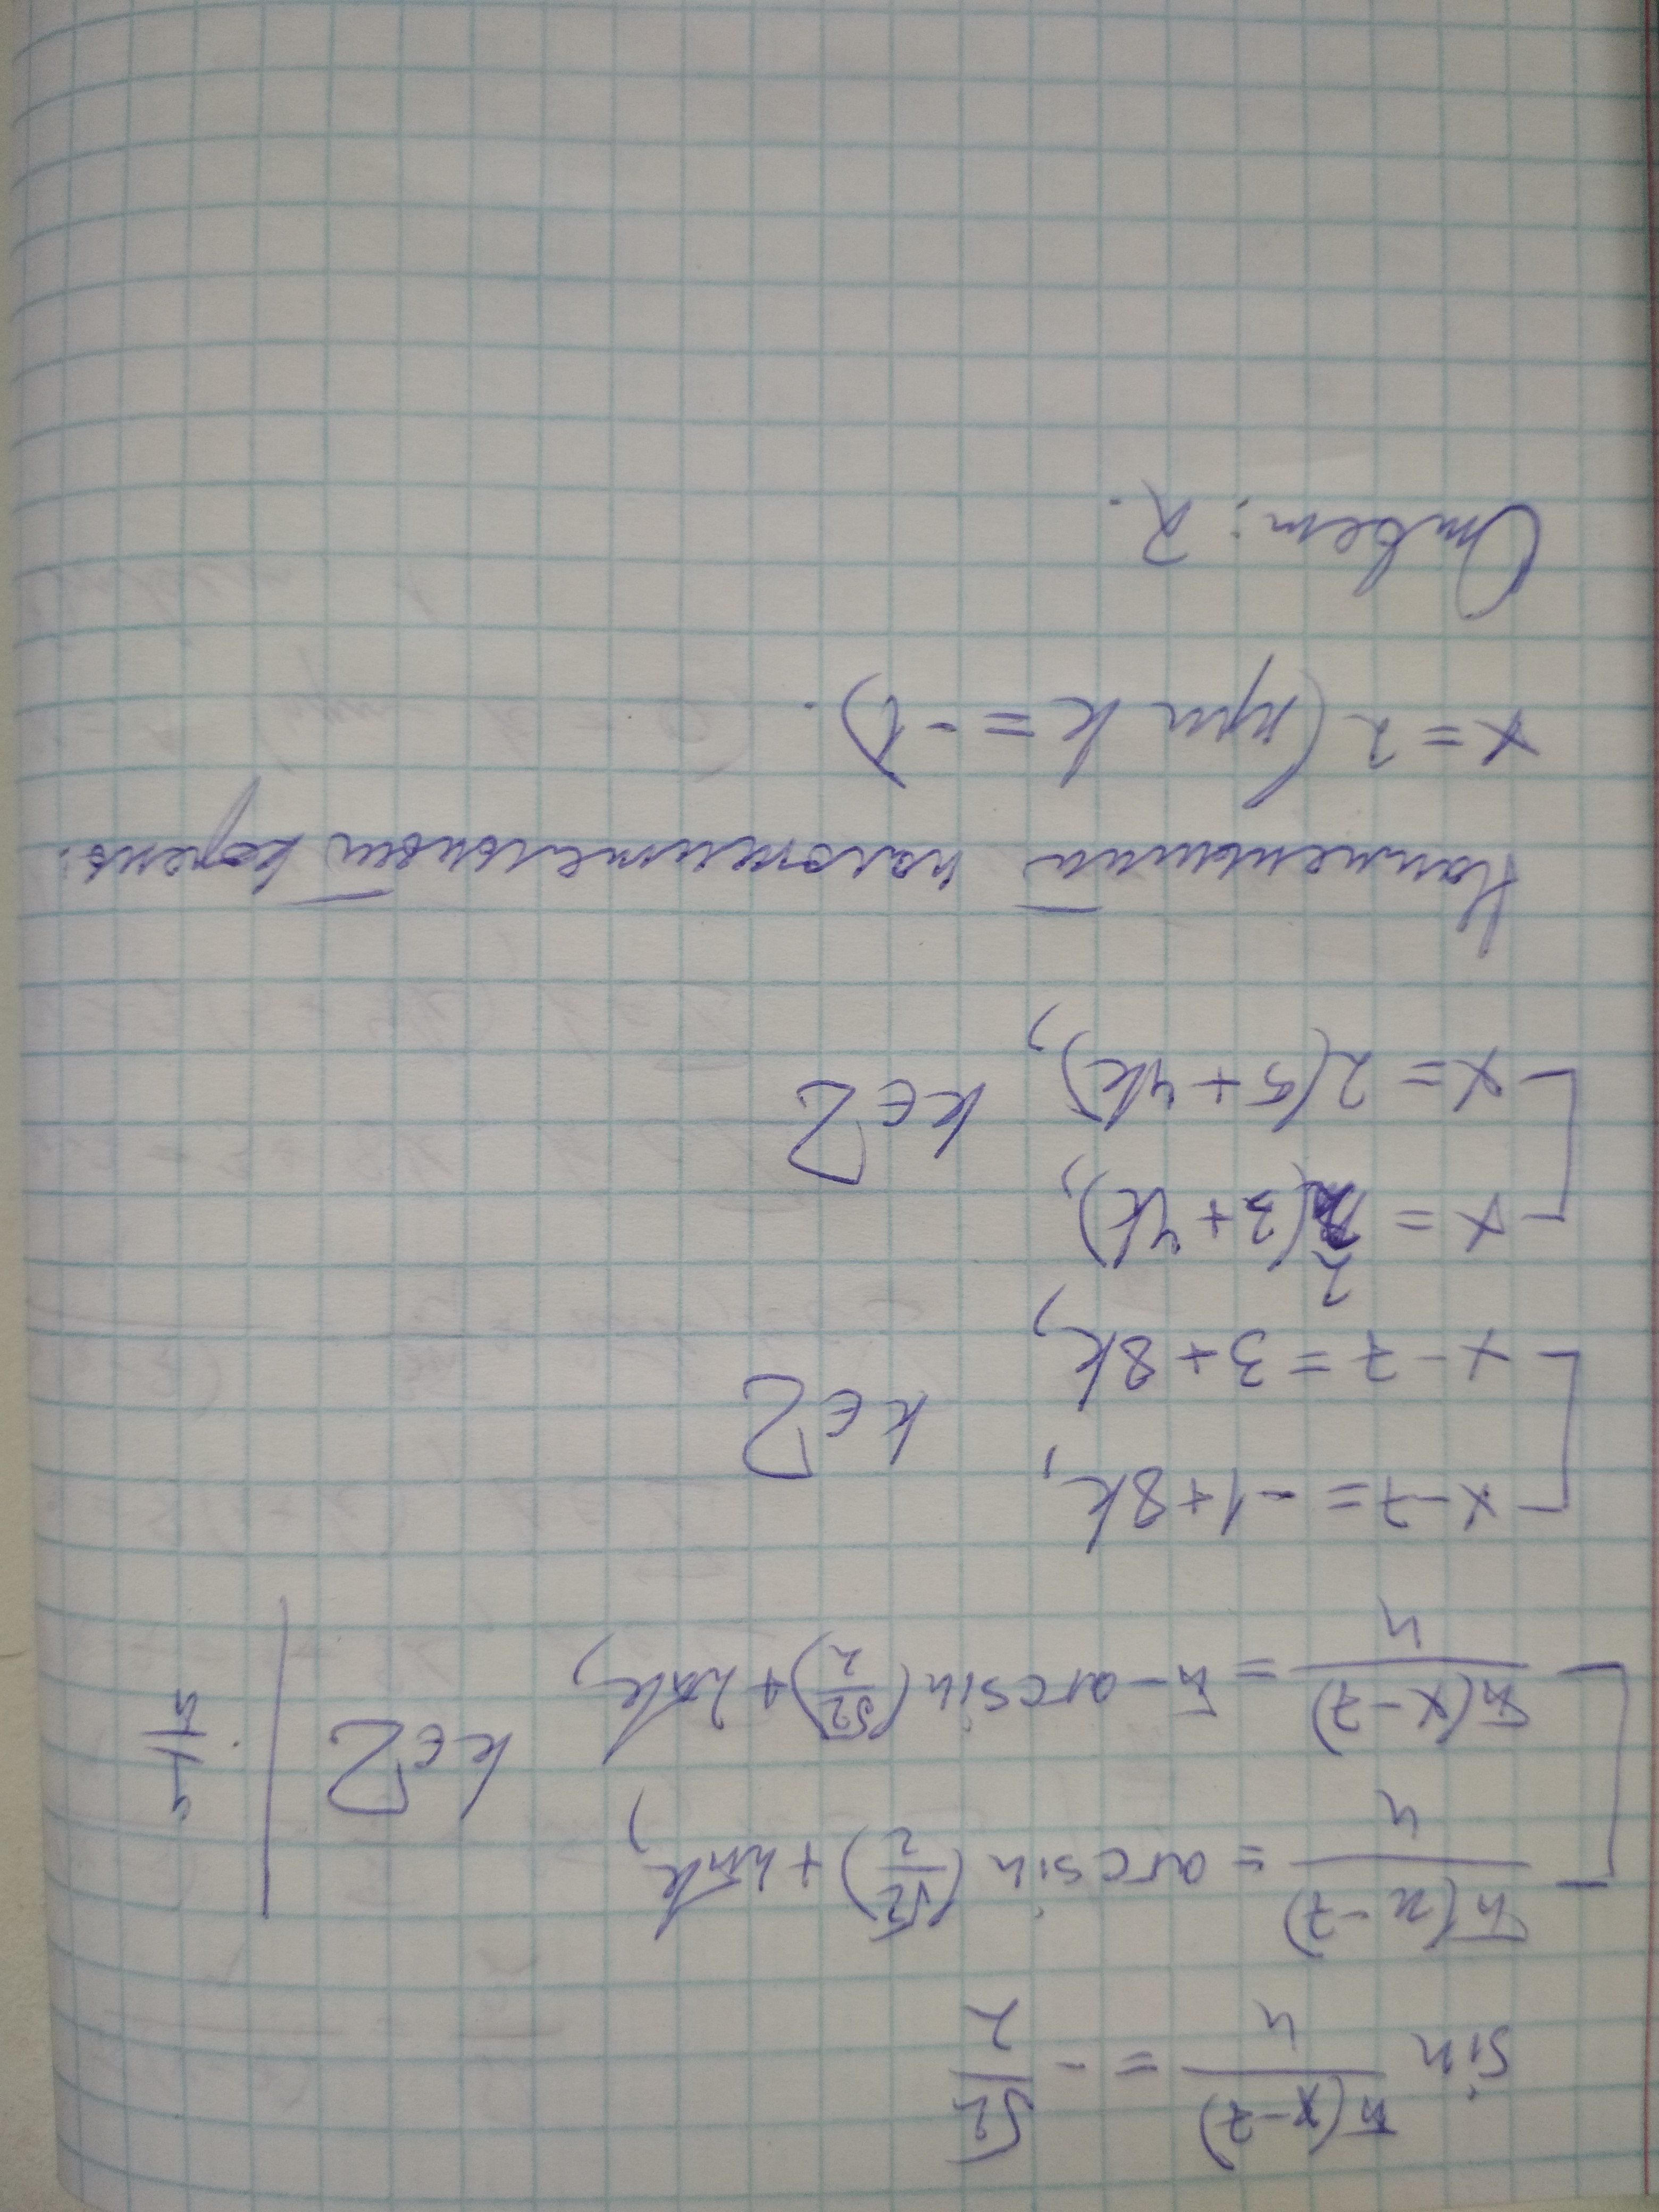 sin π(x-7)/4 = -√2/2
π(x-7)/4 = arcsin(√2/2) + 2πk,
π(x-7)/4 = π - arcsin(√2/2) + 2πk, k∈Z | 4/π
x - 7 = -1 + 8k,
x - 7 = 3 + 8k, k∈Z
x = 2(3 + 4k),
x = 2(5 + 4k), k∈Z
Наименьший положительный корень:
x = 2 (при k = -1).
Ответ: 2.